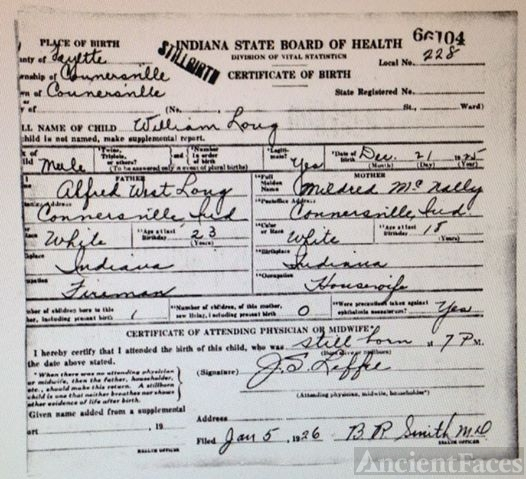 66104
PLACE OF BIRTH
STILLBIRTH
INDIANA STATE BOARD OF HEALTH
228
nty of Fayette
DIVISION OF VITAL STATISTICS
Local No.
wnship of Connersville
CERTIFICATE OF BIRTH
wn of Connersville
State Registered No.
y of (No. St., Ward)
LL NAME OF CHILD William Long
child is not named, make supplemental report.
of Male Twins, Triplets, or others? and Number in order of birth Legitimate? Yes Date of birth Dec. 21 1925
(To be answered only in event of plural births) (Month) (Day) (Year)
FATHER MOTHER
Alfred West Long Full Maiden Name Mildred McNally
Connersville Ind Postoffice Address Connersville, Ind.
White Age at last Birthday 23 (Years) Color or Race White Age at last Birthday 18 (Years)
place Indiana Birthplace Indiana
pation Fireman Occupation Housewife
ber of children born to this her, including present birth 1 Number of children, of this mother, now living, including present birth 0 Were precautions taken against ophthalmia neonatorum? Yes
CERTIFICATE OF ATTENDING PHYSICIAN OR MIDWIFE*
I hereby certify that I attended the birth of this child, who was still born at 7 P M.
the date above stated. (Born alive or stillborn)
*When there was no attending physician or midwife, then the father, householder, etc., should make this return. A stillborn child is one that neither breathes nor shows other evidence of life after birth.
(Signature)
(Attending physician, midwife, householder*)
Given name added from a supplemental
ort , 19
Address
Filed Jan 5, 1926 B R Smith MD
HEALTH OFFICER HEALTH OFFICER
AncientFaces